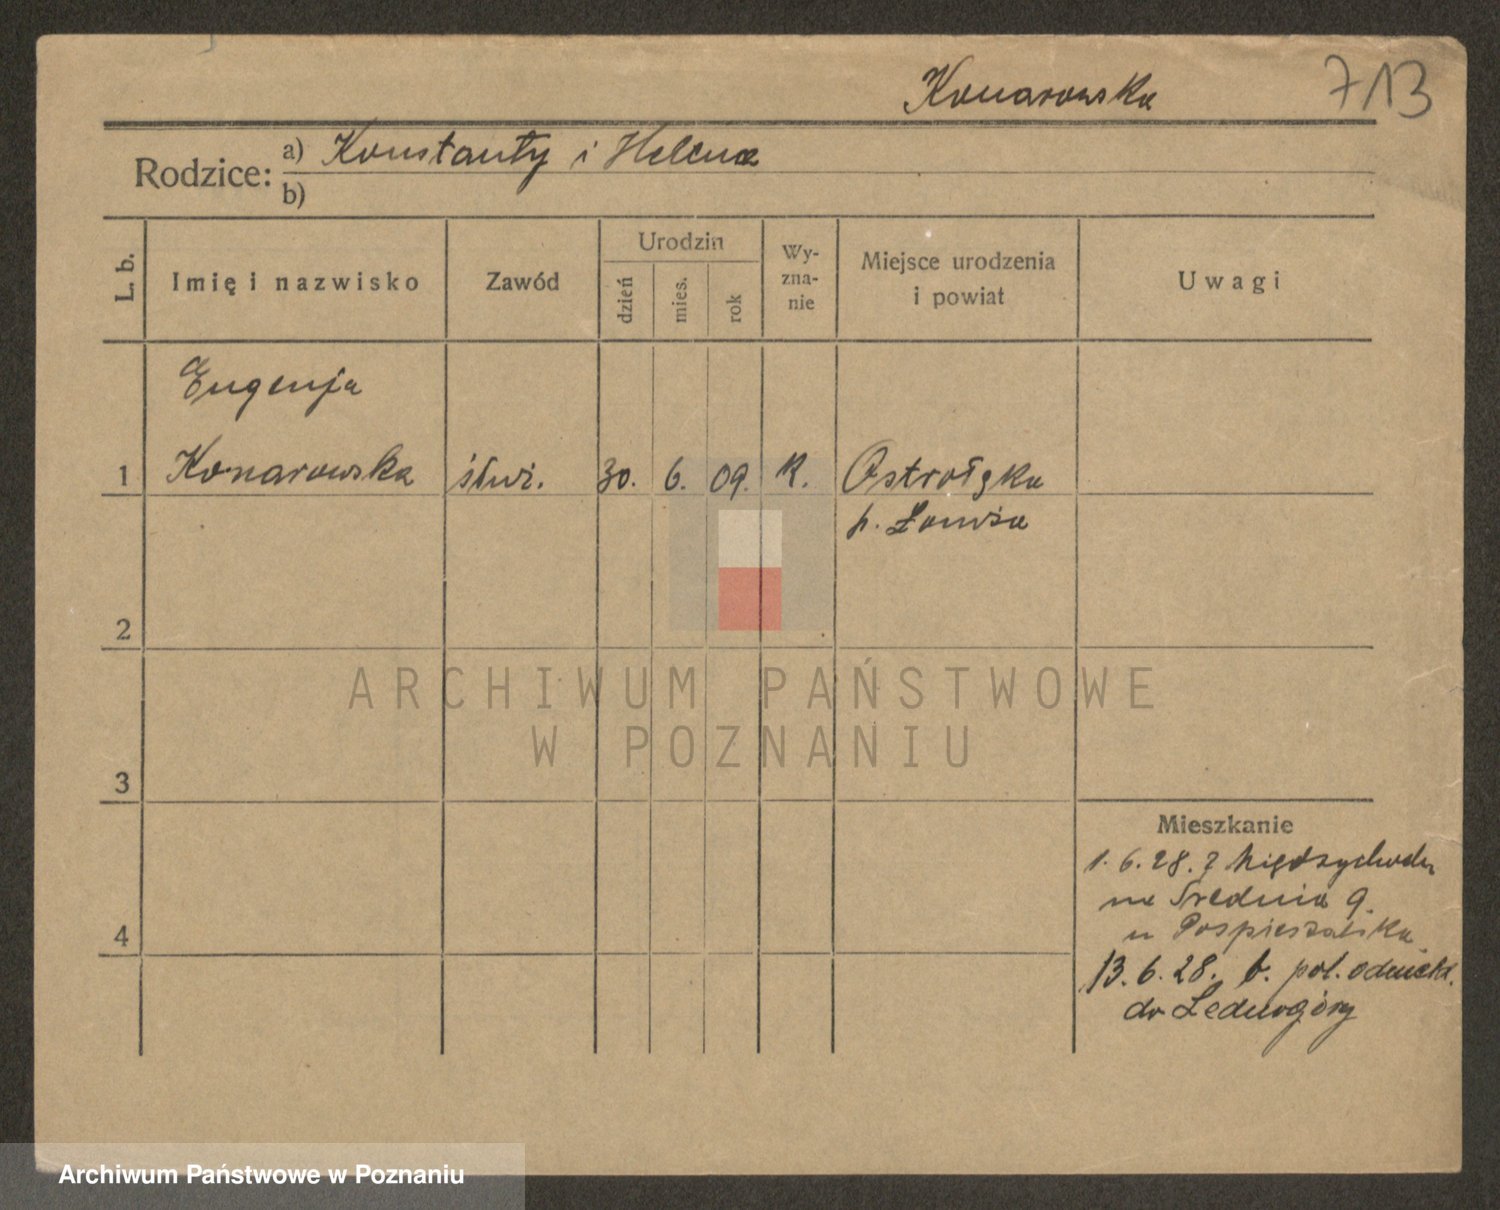 Konarowska 713
Rodzice: a) Konstanty i Helena
b)
L. b.
Imię i nazwisko
Zawód
Urodzin
dzień
mies.
rok
Wy-
zna-
nie
Miejsce urodzenia
i powiat
Uwagi
Eugenja
1 Konarowska 30. 6. 09. K. Ostrołęka
p. Łomża
2
3
4
ARCHIWUM PAŃSTWOWE
W POZNANIU
Mieszkanie
1. 6. 28. z Międzychodu
na Średnia 9.
u Pospieszalska
13. 6. 28. b. pol. odmeld.
do Lednogóry
Archiwum Państwowe w Poznaniu